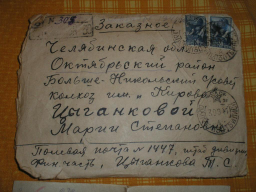 Заказное
Челябинская обл
Октябрьский район
Больше-Никольский с/совет
колхоз им. Кирова
Цыганковой
Марии Степановне
Полевая почта №1447, штаб дивизии
Фин. часть, Цыганкова Т. С.